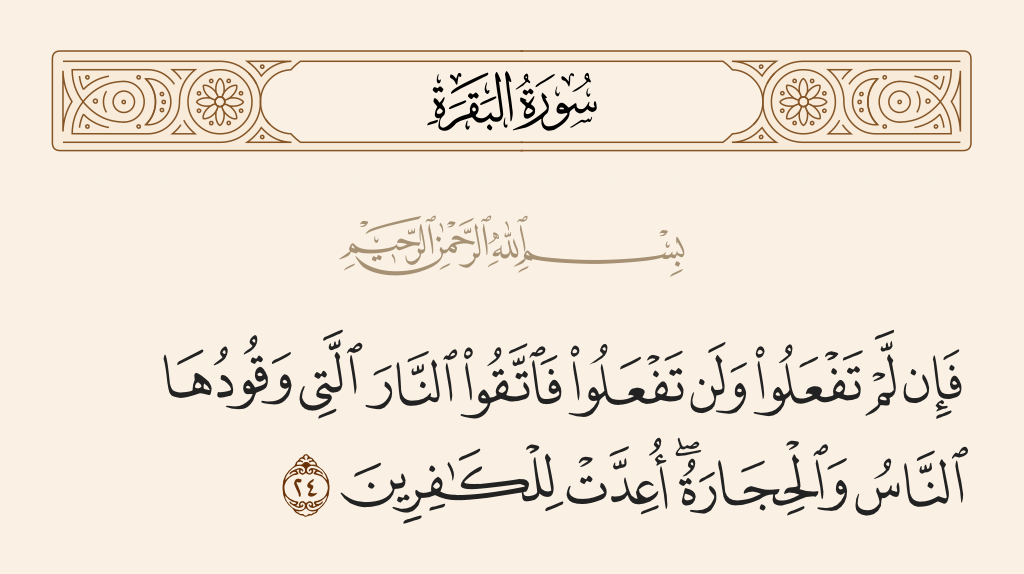 سُورَةُ البَقَرَةِ
بِسْمِ ٱللَّهِ ٱلرَّحْمَٰنِ ٱلرَّحِيمِ
فَإِن لَّمْ تَفْعَلُوا۟ وَلَن تَفْعَلُوا۟ فَٱتَّقُوا۟ ٱلنَّارَ ٱلَّتِى وَقُودُهَا
ٱلنَّاسُ وَٱلْحِجَارَةُ ۖ أُعِدَّتْ لِلْكَـٰفِرِينَ ٢٤